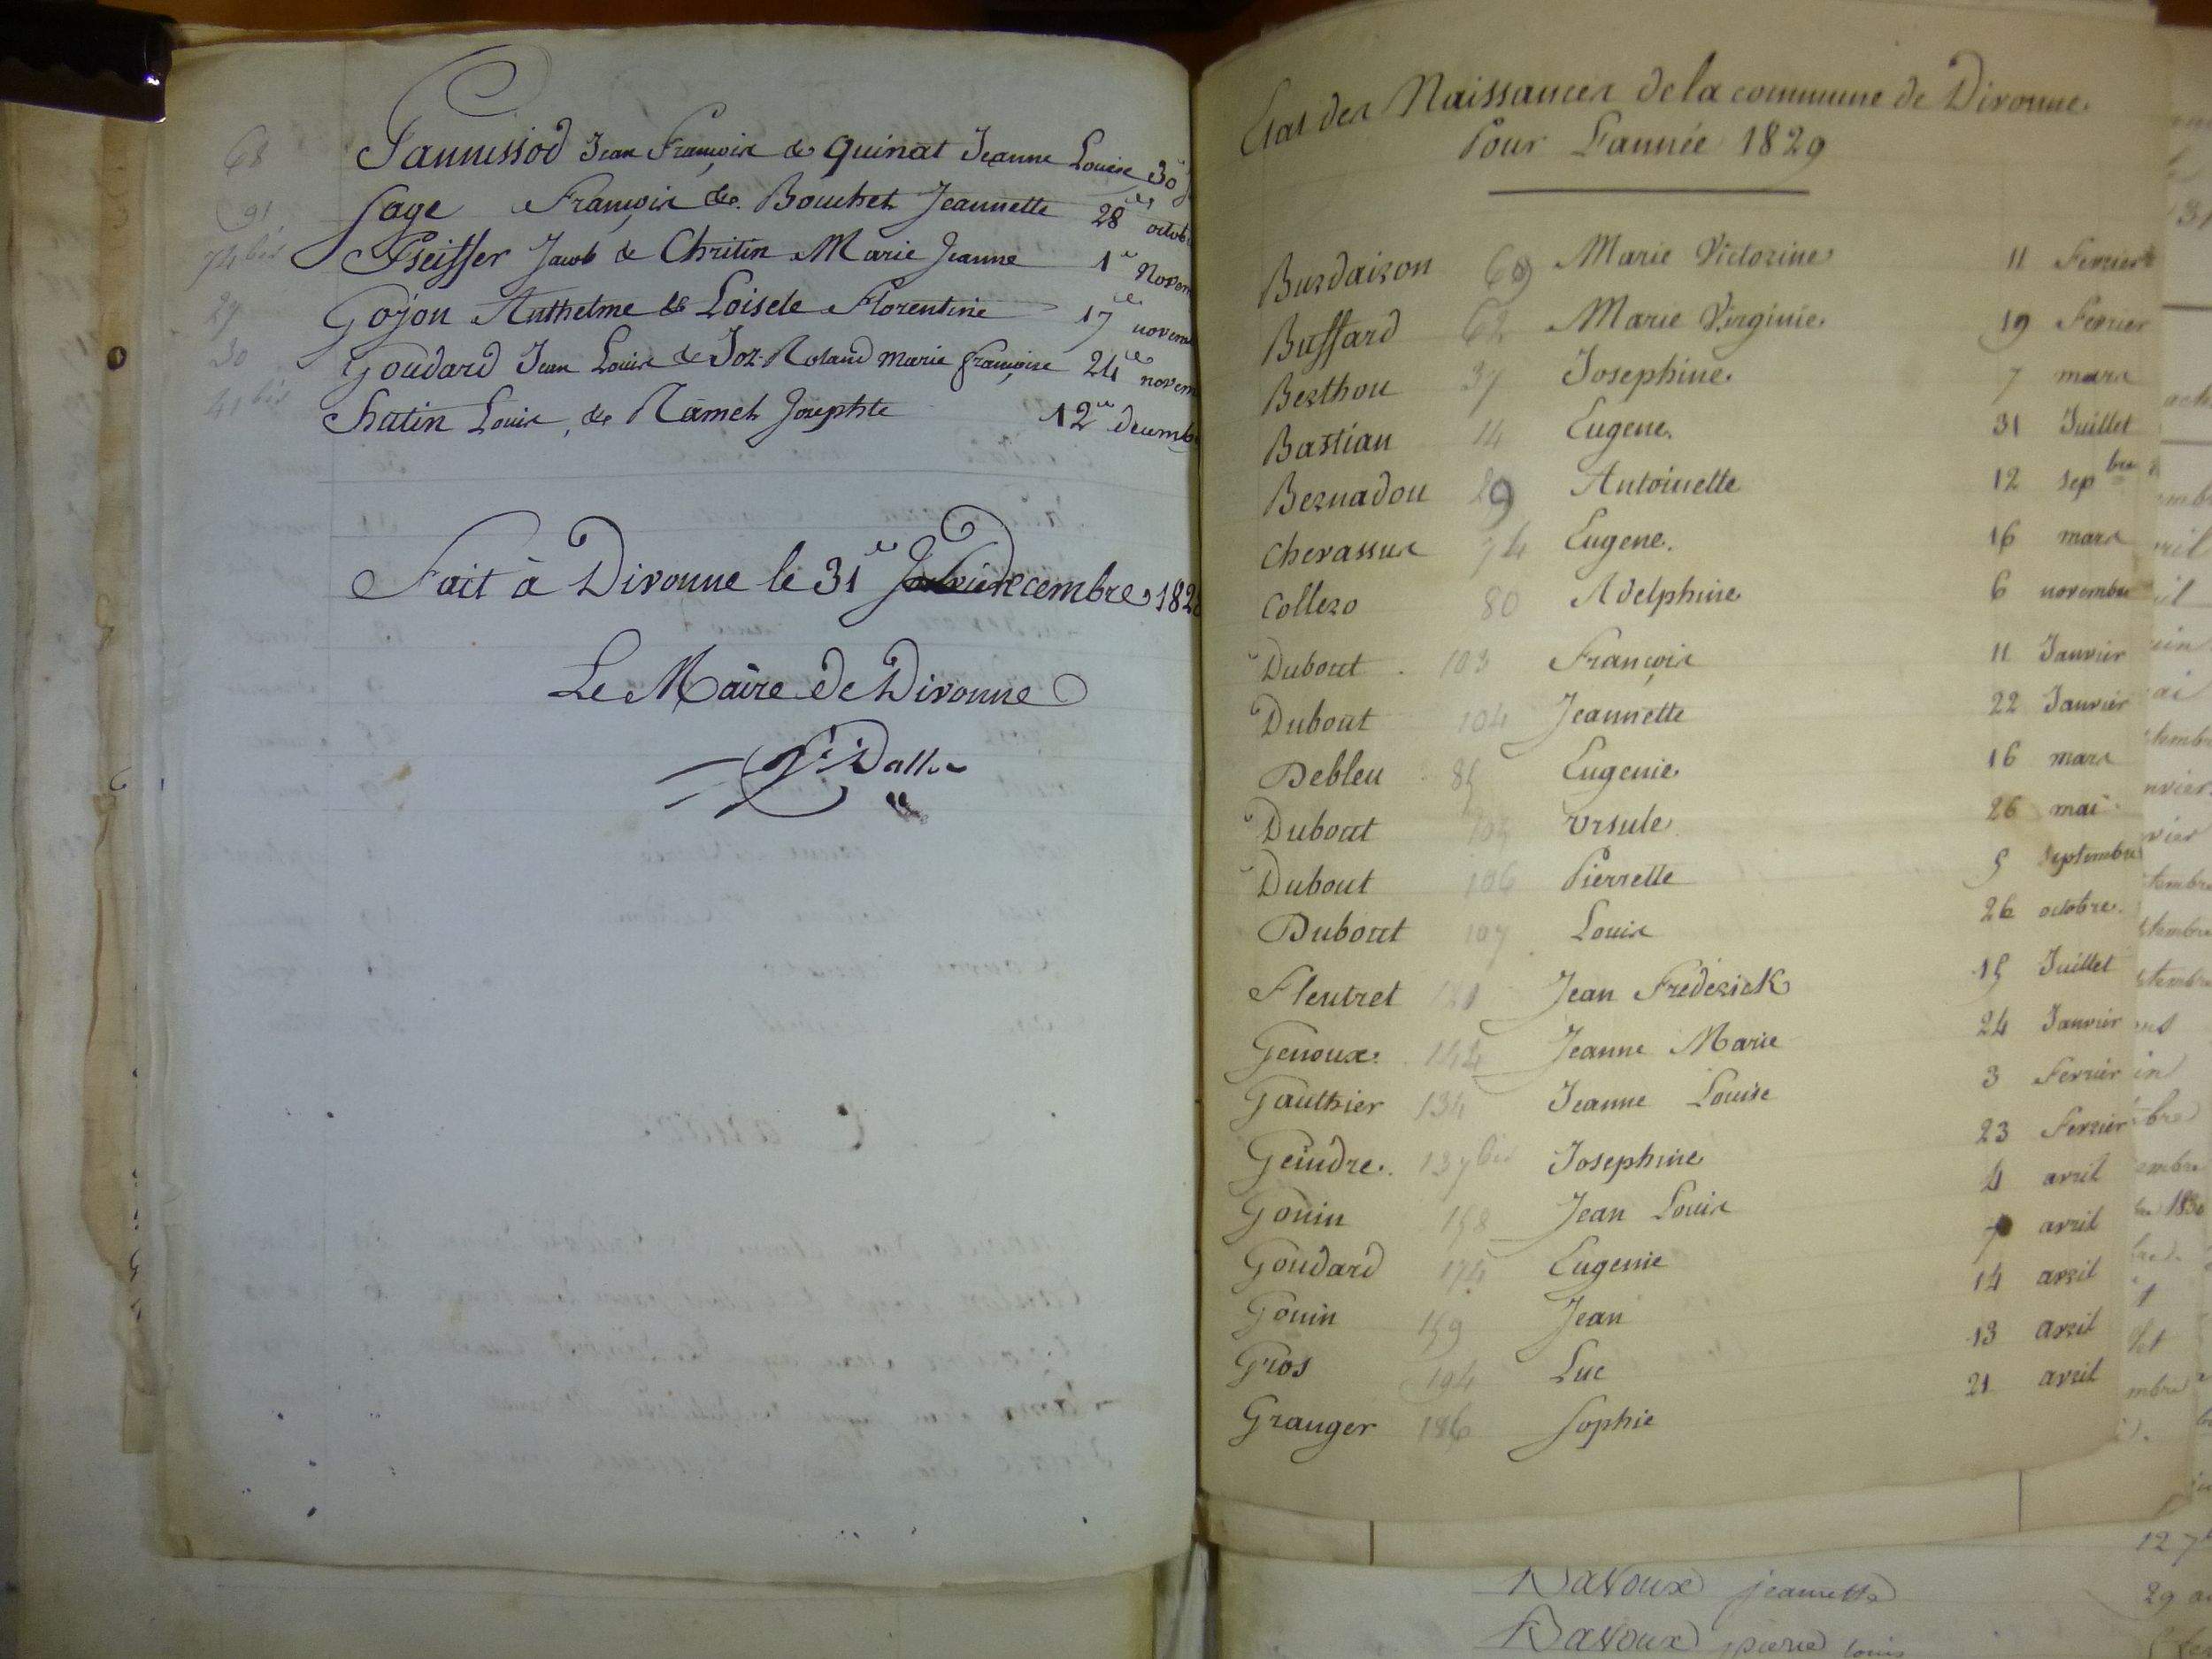 68 Jannissod Jean François & Quinat Jeanne Louise 30e
91 Sage François & Bouchet Jeannette 28e octob
74 bis Pfeiffer Jacob & Chritin Marie Jeanne 1e Novem
29 Gojon Anthelme & Loisele Florentine 17e novem
30 Goudard Jean Louis & Joz-Roland Marie françoise 24e novem
41 bis Chatin Louis, & Ramet Josephte 12e decemb
Fait à Divonne le 31e Decembre 182
Le Maire de Divonne
Etat des Naissances de la commune de Divonne
Pour L'année 1829
Burdairon 69 Marie Victorine 11 Fevrier
Buffard 62 Marie Virginie 19 Fevrier
Berthou 37 Josephine 7 mars
Bastian 14 Eugene 31 Juillet
Bernadou 29 Antoinette 12 sepbre
Chevassus 74 Eugene 16 mars
Collezo 80 Adelphine 6 novembre
Dubout 103 François 11 Janvier
Dubout 104 Jeannette 22 Janvier
Debleu 85 Eugenie 16 mars
Dubout 105 Ursule 26 mai
Dubout 106 Pierrette 5 septembre
Dubout 107 Louis 26 octobre
Fleutret 121 Jean Fréderick 15 Juillet
Genoux 144 Jeanne Marie 24 Janvier
Gauthier 134 Jeanne Louise 3 Fevrier
Geindre 137 bis Josephine 23 Fevrier
Gouin 158 Jean Louis 4 avril
Goudard 174 Eugenie 7 avril
Gouin 159 Jean 14 avril
Gros 194 Luc 13 avril
Granger 186 Sophie 21 avril
Davoux jeannette 29
Davoux pierre louis